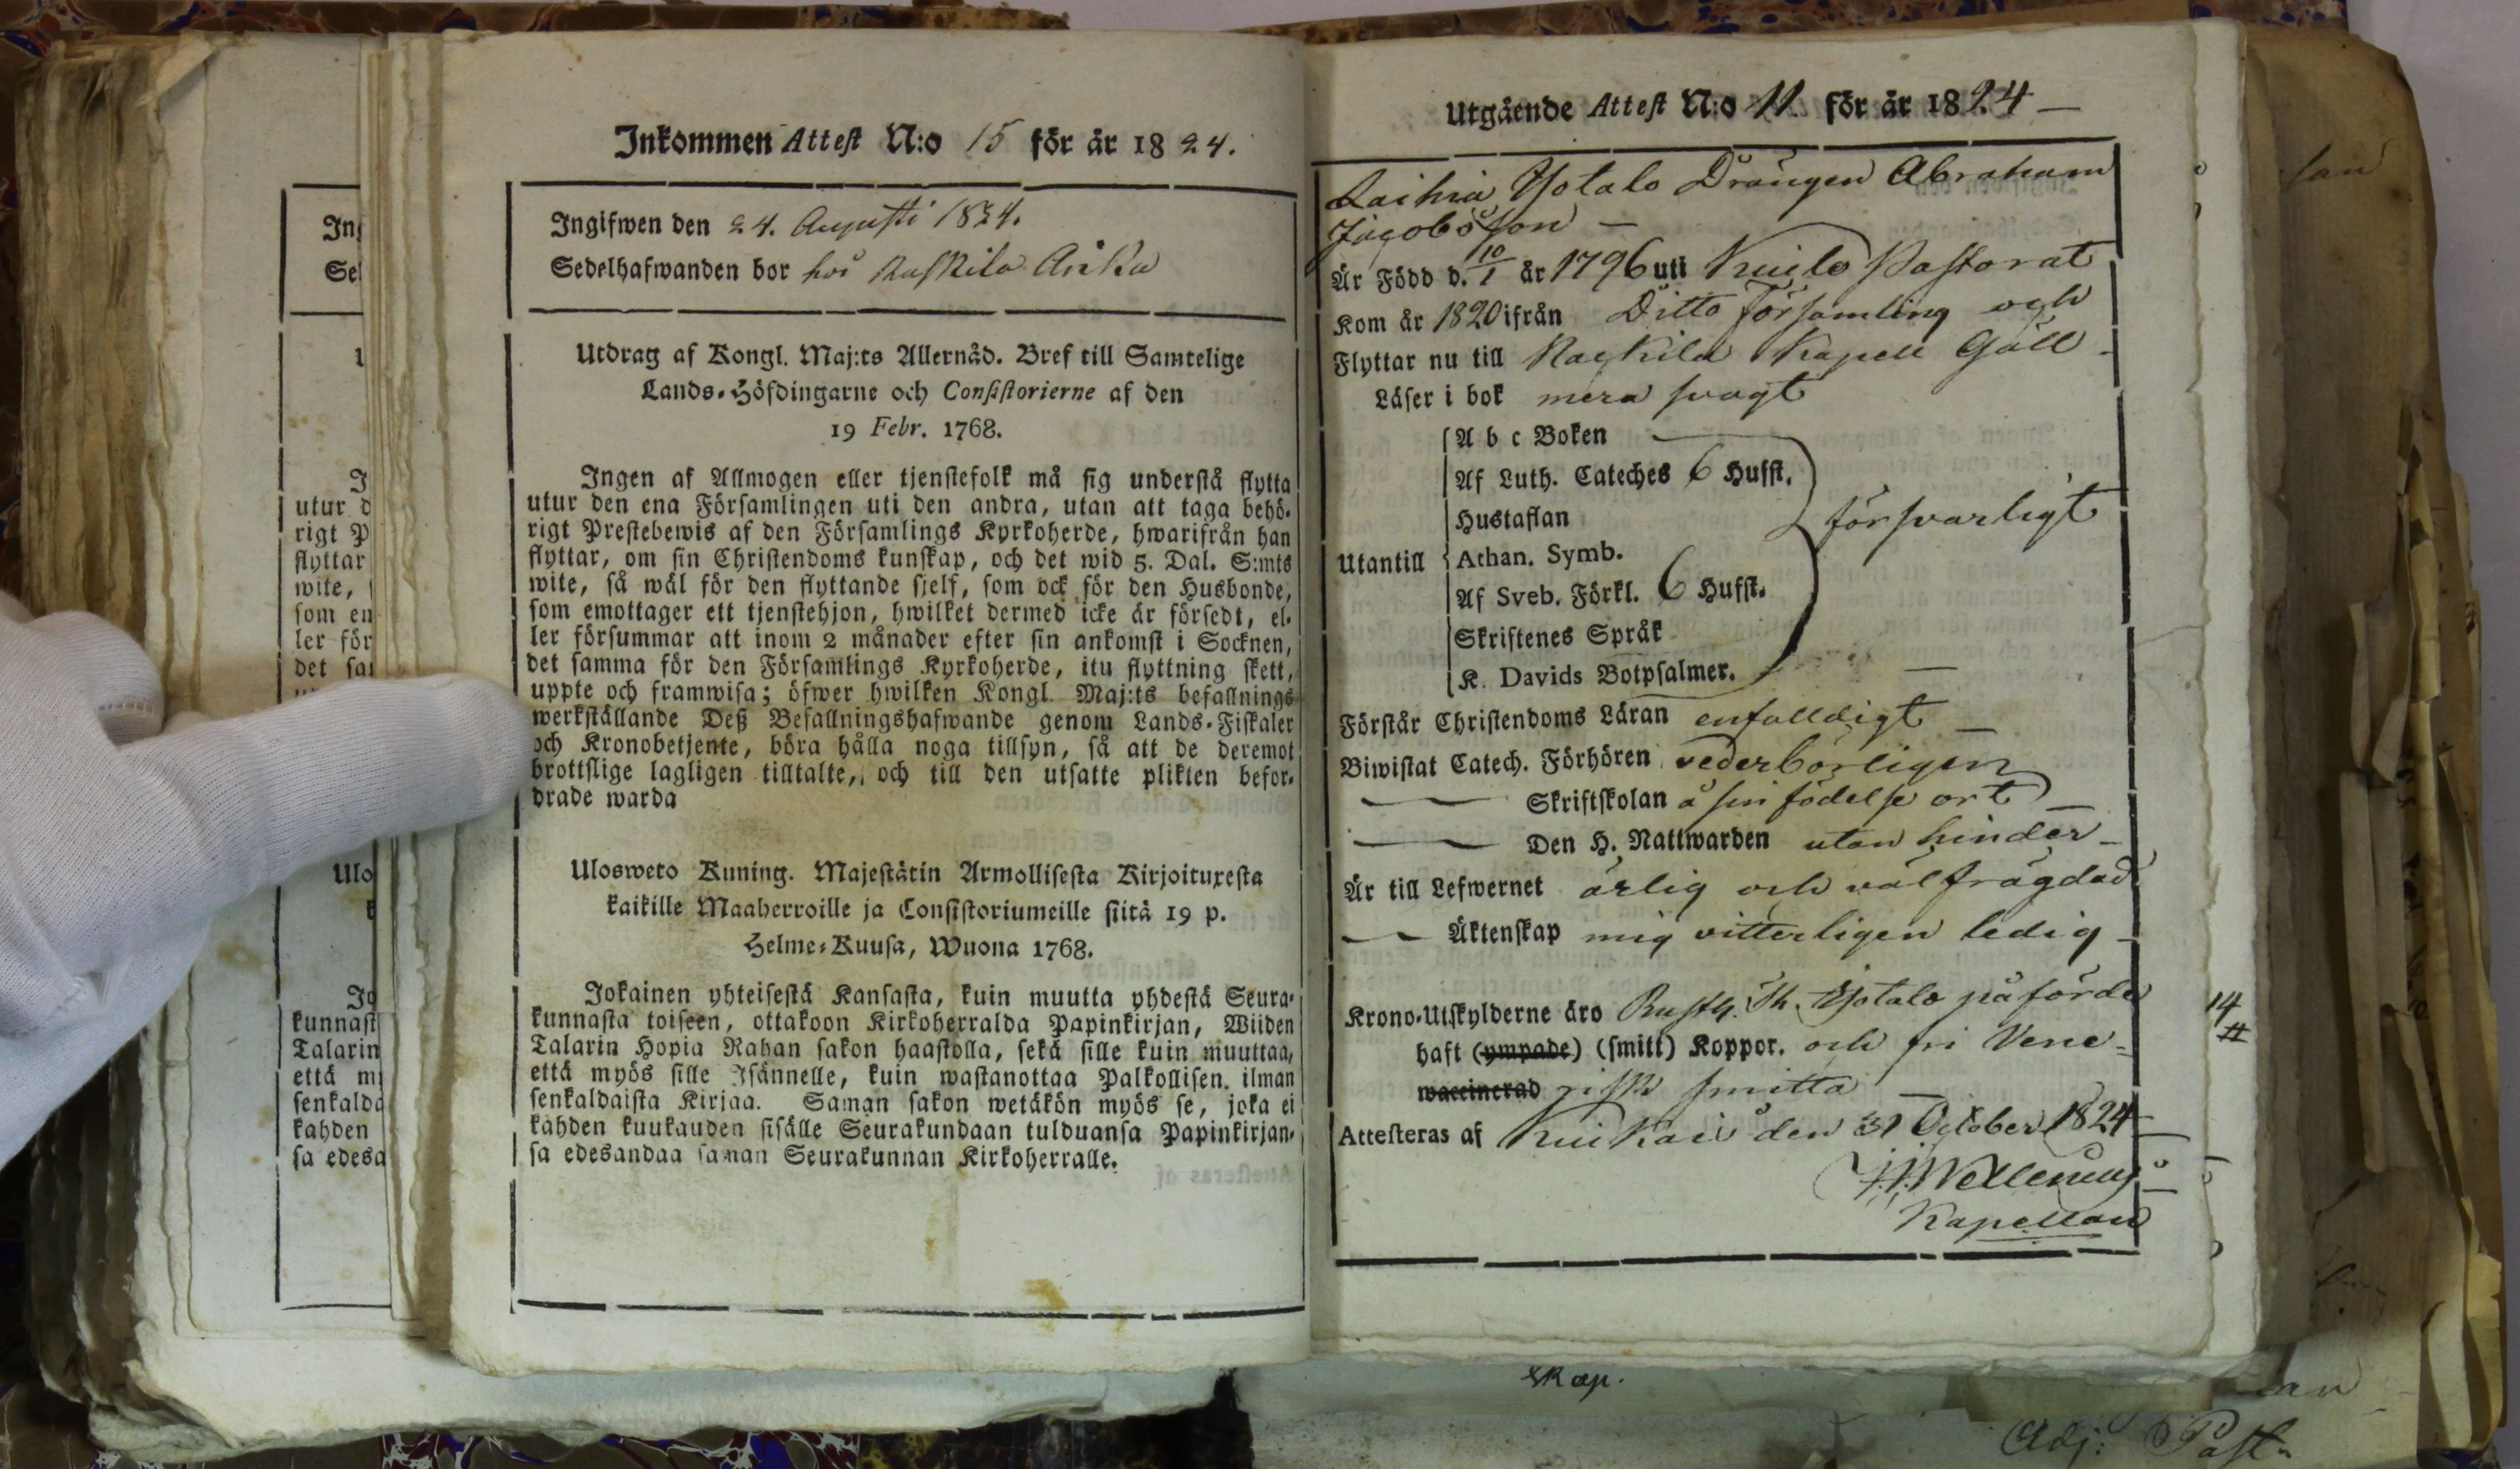 Inkommen Attest N:o 15 för år 1824.
Ingifwen den 24. Augusti 1824.
Sedelhafwanden bor hos
Utdrag af Kongl. Maj:ts Allernåd. Bref till Samtelige
Lands-Höfdingarne och Consistorierne af den
19 Febr. 1768.
Ingen af Allmogen eller tjenstefolk må sig understå flytta
utur den ena Församlingen uti den andra, utan att taga behö-
rigt Prestebewis af den Församlings Kyrkoherde, hwarifrån han
flyttar, om sin Christendoms kunskap, och det wid 5. Dal. S:mts
wite, så wäl för den flyttande sjelf, som ock för den Husbonde,
som emottager ett tjenstehjon, hwilket dermed icke är försedt, el-
ler försummar att inom 2 månader efter sin ankomst i Socknen,
det samma för den Församlings Kyrkoherde, itu flyttning skett,
uppte och framwisa; öfwer hwilken Kongl. Maj:ts befallnings
werkställande Deß Befallningshafwande genom Lands-Fiskaler
och Kronobetjente, böra hålla noga tillsyn, så att de deremot
brottslige lagligen tilltalte, och till den utsatte plikten befor-
drade warda
Ulosweto Kuning. Majestätin Armollisesta Kirjoituxesta
kaikille Maaherroille ja Consistoriumeille siitä 19 p.
Helme-Kuusa, Wuona 1768.
Jokainen yhteisestä Kansasta, kuin muutta yhdestä Seura-
kunnasta toiseen, ottakoon Kirkoherralda Papinkirjan, Wiiden
Talarin Hopia Rahan sakon haastolla, sekä sille kuin muuttaa,
että myös sille Isännelle, kuin wastanottaa Palkollisen. ilman
senkaldaista Kirjaa. Saman sakon wetäkön myös se, joka ei
kahden kuukauden sisälle Seurakundaan tulduansa Papinkirjan-
sa edesandaa saman Seurakunnan Kirkoherralle.
Utgående Attest N:o 11 för år 1824
Laihia Yotalo Drängen Abraham
Jacobsson
Är Född d. 10/1 år 1796 uti Pastorat
Kom år 1820 ifrån Ditto församling och
Flyttar nu till Kapell Gäll
Läser i bok mera svagt
A b c Boken
Af Luth. Cateches 6 Hufst.
Hustaflan försvarligt
Utantill Athan. Symb.
Af Sveb. Förkl. 6 Hufst.
Skriftenes Språk
K. Davids Botpsalmer.
Förstår Christendoms Läran enfalldigt
Biwistat Catech. Förhören vederbörligen
Skriftskolan å sin födelse ort
Den H. Nattwarden utan hinder
Är till Lefwernet ärlig och välfrägdad
Äktenskap mig vitterligen ledig
Krono-Utskylderne äro Rusth. Yotalo påförde
haft (ympade) (smitt) Koppor. och fri Vene-
waccinerad risk smitta
Attesteras af den 31 October 1824
Kapellan
14
Kap.
Adj: Past.